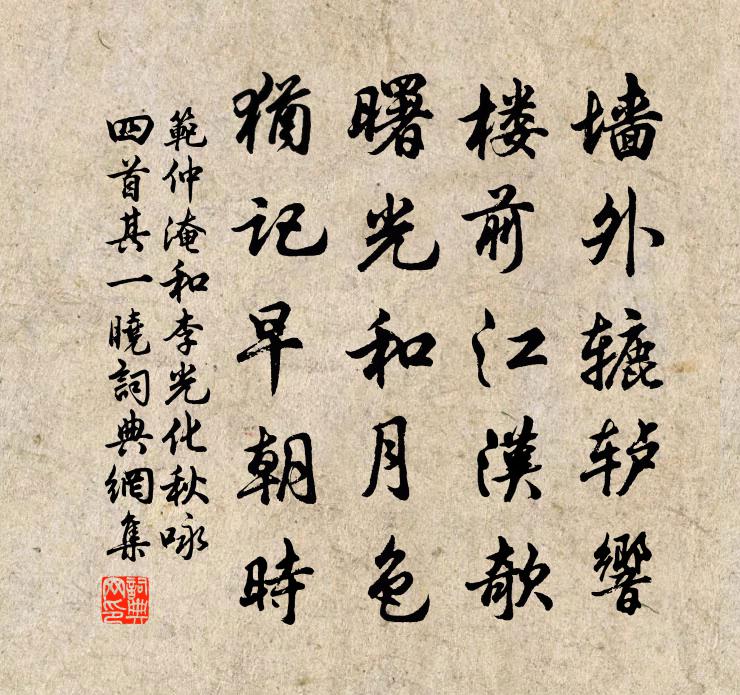 墙外辘轳響
楼前江漢欹
曙光和月色
猶记早朝時
範仲淹和李光化秋咏
四首其一曉詞典網集
詞典网印